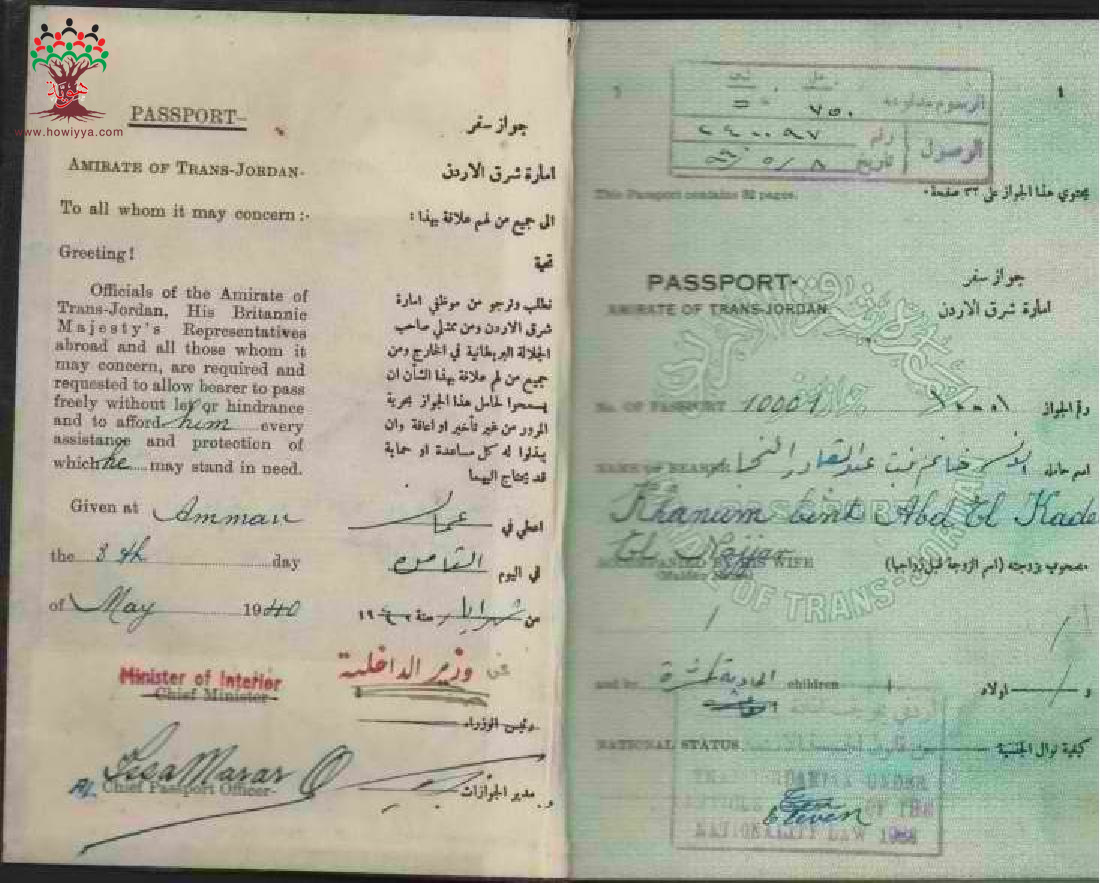 www.howiyya.com
PASSPORT-
جواز سفر
AMIRATE OF TRANS-JORDAN-
امارة شرق الاردن
To all whom it may concern :-
الى جميع من لهم علاقة بهذا :
Greeting!
تحية
Officials of the Amirate of
Trans-Jordan, His Britannic
Majesty's Representatives
abroad and all those whom it
may concern, are required and
requested to allow bearer to pass
freely without let or hindrance
and to afford him every
assistance and protection of
which he may stand in need.
نطلب ونرجو من موظفي امارة
شرق الاردن ومن ممثلي صاحب
الجلالة البريطانية في الخارج ومن
جميع من لهم علاقة بهذا الشأن ان
يسمحوا لحامل هذا الجواز بحرية
المرور من غير تأخير او اعاقة وان
يبذلوا له كل مساعدة او حماية
قد يحتاج اليهما
Given at Amman
اعطي في عمان
the 8th day
في اليوم الثامن
of May 1940
من شهر ايار سنة
Minister of Interior
عن وزير الداخلية
Chief Minister-
رئيس الوزراء
Issa Marar
Chief Passport Officer-
مدير الجوازات
١
الرسوم
٧٥٠
الوصول
رقم
تاريخ
This Passport contains 32 pages.
يحتوي هذا الجواز على ٣٢ صفحة
PASSPORT-
جواز سفر
AMIRATE OF TRANS-JORDAN
امارة شرق الاردن
No. OF PASSPORT 10001
رقم الجواز ١٠٠٠١
NAME OF BEARER
اسم حامله الآنسة خانم بنت عبد القادر النجار
Khanum bint Abd El Kader
El Najjar
ACCOMPANIED BY HIS WIFE
(Maiden Name)
مصحوب بزوجته (اسم الزوجة قبل زواجها)
OF TRANS-JORDAN
and by children
و اولاد
الحادية عشرة
NATIONAL STATUS
كيفية نوال الجنسية
TRANSJORDANIAN UNDER
OF THE
Eleven
NATIONALITY LAW